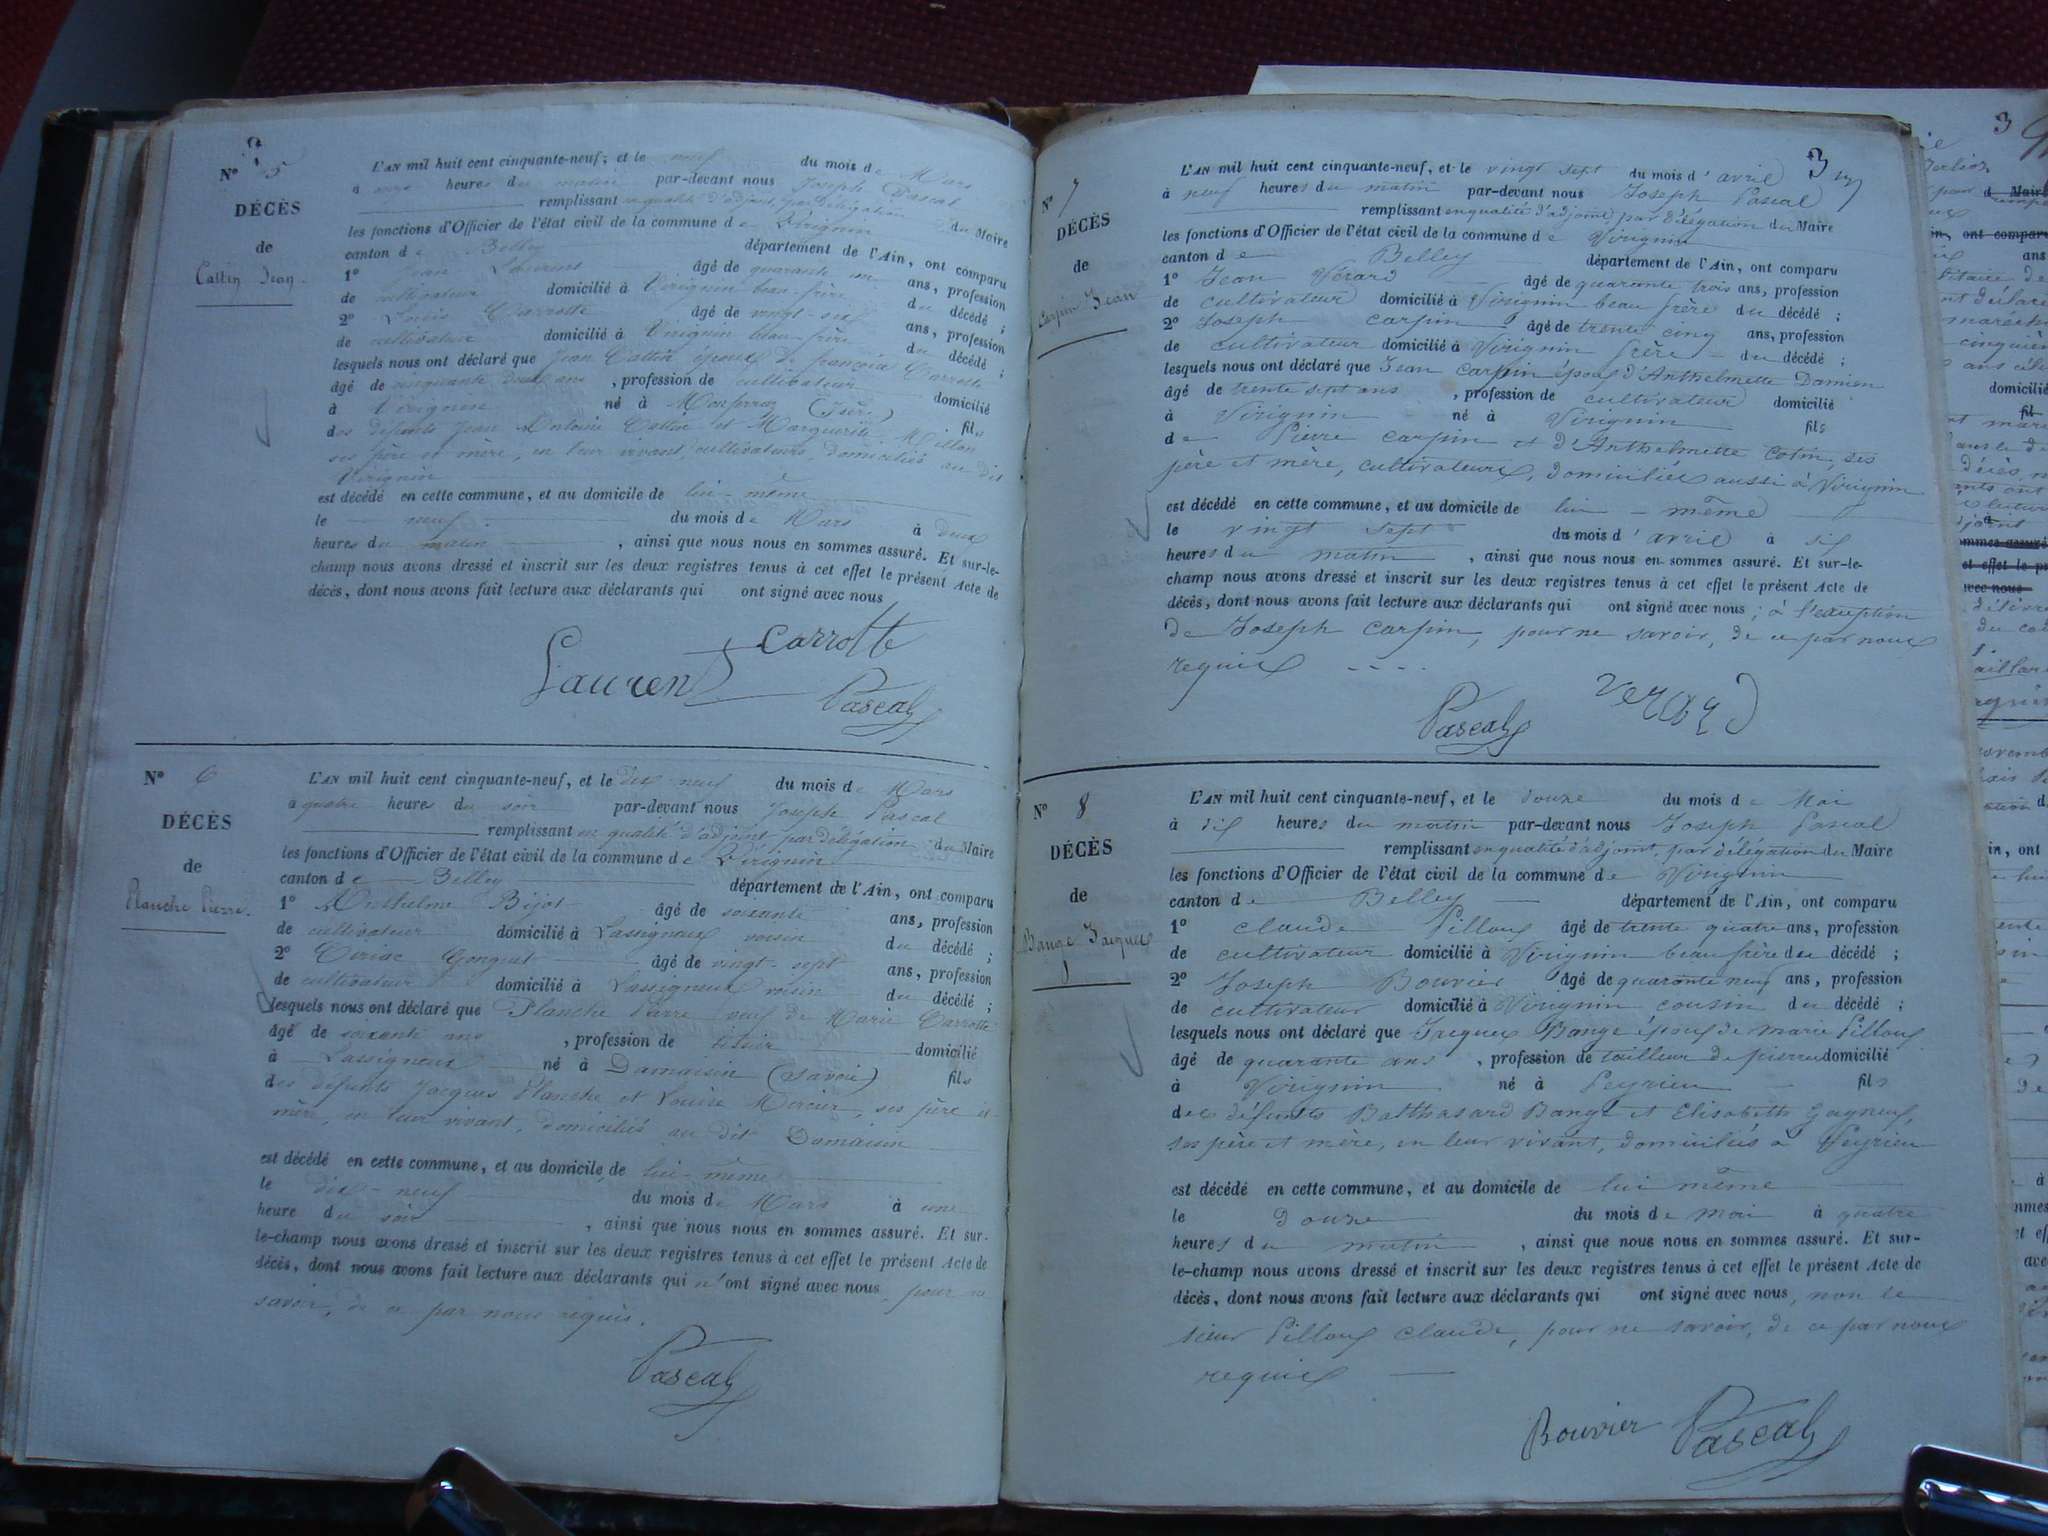 N° 5
DÉCÈS
de
Cattin Jean.
L'AN mil huit cent cinquante-neuf, et le neuf du mois de Mars
à onze heures du matin par-devant nous Joseph Pascal
remplissant en qualité d'adjoint par délégation du Maire
les fonctions d'Officier de l'état civil de la commune de Virignin
canton de Belley département de l'Ain, ont comparu
1° Jean Laurent âgé de quarante un ans, profession
de cultivateur domicilié à Virignin beau-frère du décédé ;
2° Louis Carrotte âgé de vingt-six ans, profession
de cultivateur domicilié à Virignin beau-frère du décédé ;
lesquels nous ont déclaré que Jean Cattin époux de françoise Carrotte
âgé de cinquante deux ans, profession de cultivateur domicilié
à Virignin né à (Isère) fils
des défunts Jean Antoine Cattin et Marguerite Millon
ses père et mère, en leur vivant, cultivateurs, domiciliés au dit
Virignin
est décédé en cette commune, et au domicile de lui-même
le neuf du mois de Mars à deux
heures du matin, ainsi que nous nous en sommes assuré. Et sur-le-
champ nous avons dressé et inscrit sur les deux registres tenus à cet effet le présent Acte de
décès, dont nous avons fait lecture aux déclarants qui ont signé avec nous
Carrotte
Laurent
Pascal
N° 6
DÉCÈS
de
Planche Pierre.
L'AN mil huit cent cinquante-neuf, et le dix neuf du mois de Mars
à quatre heures du soir par-devant nous Joseph Pascal
remplissant en qualité d'adjoint par délégation du Maire
les fonctions d'Officier de l'état civil de la commune de Virignin
canton de Belley département de l'Ain, ont comparu
1° Anthelme Bijot âgé de soixante ans, profession
de cultivateur domicilié à Lassigneux voisin du décédé ;
2° Ciriac Gonguet âgé de vingt-sept ans, profession
de cultivateur domicilié à Lassigneux voisin du décédé ;
lesquels nous ont déclaré que Planche Pierre veuf de Marie Carrotte
âgé de soixante ans, profession de domicilié
à Lassigneux né à Damaisin (Savoie) fils
des défunts Jacques Planche et Louise Mercier, ses père et
mère, en leur vivant, domiciliés au dit Damaisin
est décédé en cette commune, et au domicile de lui-même
le dix-neuf du mois de Mars à une
heure du soir, ainsi que nous nous en sommes assuré. Et sur-
le-champ nous avons dressé et inscrit sur les deux registres tenus à cet effet le présent Acte de
décès, dont nous avons fait lecture aux déclarants qui n'ont signé avec nous, pour ne
savoir, de ce par nous requis.
Pascal
3
N° 7
DÉCÈS
de
Carpin Jean
L'AN mil huit cent cinquante-neuf, et le vingt sept du mois d'avril
à neuf heures du matin par-devant nous Joseph Pascal
remplissant en qualité d'adjoint par délégation du Maire
les fonctions d'Officier de l'état civil de la commune de Virignin
canton de Belley département de l'Ain, ont comparu
1° Jean Vérard âgé de quarante trois ans, profession
de cultivateur domicilié à Virignin beau frère du décédé ;
2° Joseph carpin âgé de trente cinq ans, profession
de cultivateur domicilié à Virignin frère du décédé ;
lesquels nous ont déclaré que Jean carpin époux d'Anthelmette Damien
âgé de trente sept ans, profession de cultivateur domicilié
à Virignin né à Virignin fils
de Pierre carpin et d'Anthelmette Cotin, ses
père et mère, cultivateurs, domiciliés aussi à Virignin
est décédé en cette commune, et au domicile de lui-même
le vingt sept du mois d'avril à six
heures du matin, ainsi que nous nous en sommes assuré. Et sur-le-
champ nous avons dressé et inscrit sur les deux registres tenus à cet effet le présent Acte de
décès, dont nous avons fait lecture aux déclarants qui ont signé avec nous ; à l'exception
de Joseph carpin, pour ne savoir, de ce par nous
requis
Pascal
N° 8
DÉCÈS
de
Bange Jacques
L'AN mil huit cent cinquante-neuf, et le douze du mois de Mai
à dix heures du matin par-devant nous Joseph Pascal
remplissant en qualité d'adjoint, par délégation du Maire
les fonctions d'Officier de l'état civil de la commune de Virignin
canton de Belley département de l'Ain, ont comparu
1° claude Pilloux âgé de trente quatre ans, profession
de cultivateur domicilié à Virignin beau frère du décédé ;
2° Joseph Bouvier âgé de quarante neuf ans, profession
de cultivateur domicilié à Virignin cousin du décédé ;
lesquels nous ont déclaré que Jacques Bange époux de marie Pilloux
âgé de quarante ans, profession de tailleur de pierres domicilié
à Virignin né à Peyrieu fils
des défunts Balthasard Bange et Elisabeth Gagneux,
ses père et mère, en leur vivant, domiciliés à Peyrieu
est décédé en cette commune, et au domicile de lui même
le douze du mois de mai à quatre
heures du matin, ainsi que nous nous en sommes assuré. Et sur-
le-champ nous avons dressé et inscrit sur les deux registres tenus à cet effet le présent Acte de
décès, dont nous avons fait lecture aux déclarants qui ont signé avec nous, non le
sieur Pilloux claude, pour ne savoir, de ce par nous
requis
Bouvier Pascal